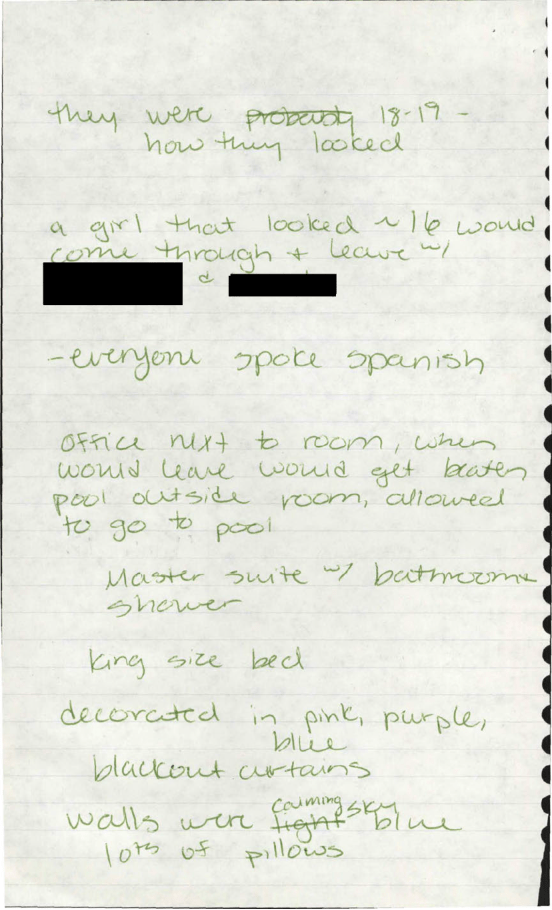 they were probably 18-19 -
how they looked
a girl that looked ~ 16 would
come through + leave w/
&
- everyone spoke spanish
office next to room, when
would leave would get beaten
pool outside room, allowed
to go to pool
Master suite w/ bathroom
shower
king size bed
decorated in pink, purple,
blue
blackout curtains
calming sky
walls were light blue
lots of pillows